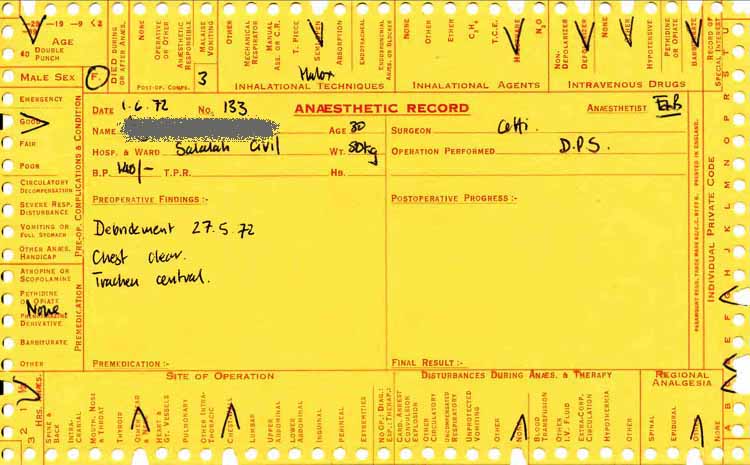 -20 -19 -9 <2
40 Age
Double Punch
Male Sex F.
Died during or after Anæs.
None
Operative or Other
Anæsthetic Responsible
Malaise Vomiting
Other
Post-op. Comps. 3
Mechanical Respirator
Manual Ass. or C.R.
T. Piece
Semi-open
Absorption
Endotracheal
Endobronchial
Halox
Inhalational Techniques
None
Other
Ether
C₃H₆
T.C.E.
Halothane
N₂O
Inhalational Agents
Non-Depolarizer
Depolarizer
None
Other
Hypotensive
Pethidine or Opiate
Barbiturate
Intravenous Drugs
Record of Special Interest
Emergency
Good
Fair
Poor
Circulatory Decompensation
Severe Resp. Disturbance
Vomiting or Full Stomach
Other Anæs. Handicap
Pre-op. Complications & Condition
Atropine or Scopolamine
Pethidine or Opiate
None.
Phenothiazine Derivative
Barbiturate
Other
Premedication
Date 1.6.72 No. 133 Anæsthetic Record Anæsthetist
Name Age 30 Surgeon Cetti.
Hosp. & Ward Salalah Civil Wt. 80kg Operation Performed D.P.S.
B.P. 140/- T.P.R. Hb.
Preoperative Findings :- Postoperative Progress :-
Debridement 27.5.72
Chest clear.
Trachea central.
Premedication :- Final Result :-
Printed in England.
Individual Private Code
Site of Operation
Disturbances During Anæs. & Therapy
Regional Analgesia
3 2 1 ½
Hrs. Anæs.
Spine & Back
Intra-Cranial
Mouth, Nose & Throat
Thyroid
Other Head & Neck
Heart & Gt. Vessels
Pulmonary
Other Intra-Thoracic
Chest Wall
Lumbar
Upper Abdominal
Lower Abdominal
Inguinal
Perineal
Extremities
No Op.: Diag.: Exp.: Therap.:
Card. Arrest Convulsion Explosion
Other Circulatory
Uncomplicated Respiratory
Unprotected Vomiting
Other
None
Blood Transfusion
Other I.V. Fluid
Extra-Corp. Circulation
Hypothermia
Other
Spinal
Epidural
Other
None